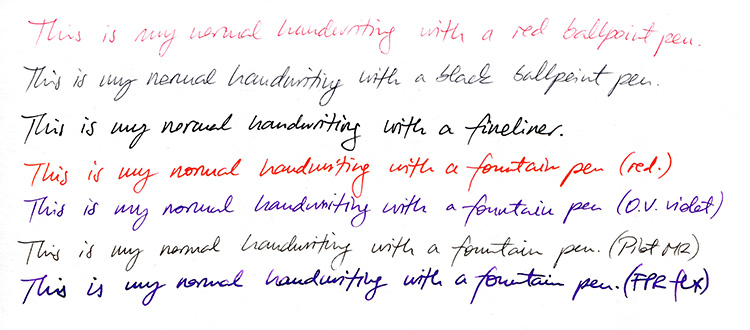 This is my normal handwriting with a red ballpoint pen.
This is my normal handwriting with a black ballpoint pen.
This is my normal handwriting with a fineliner.
This is my normal handwriting with a fountain pen (red.)
This is my normal handwriting with a fountain pen (O.V. violet)
This is my normal handwriting with a fountain pen. (Pilot MR)
This is my normal handwriting with a fountain pen. (FPR flex)